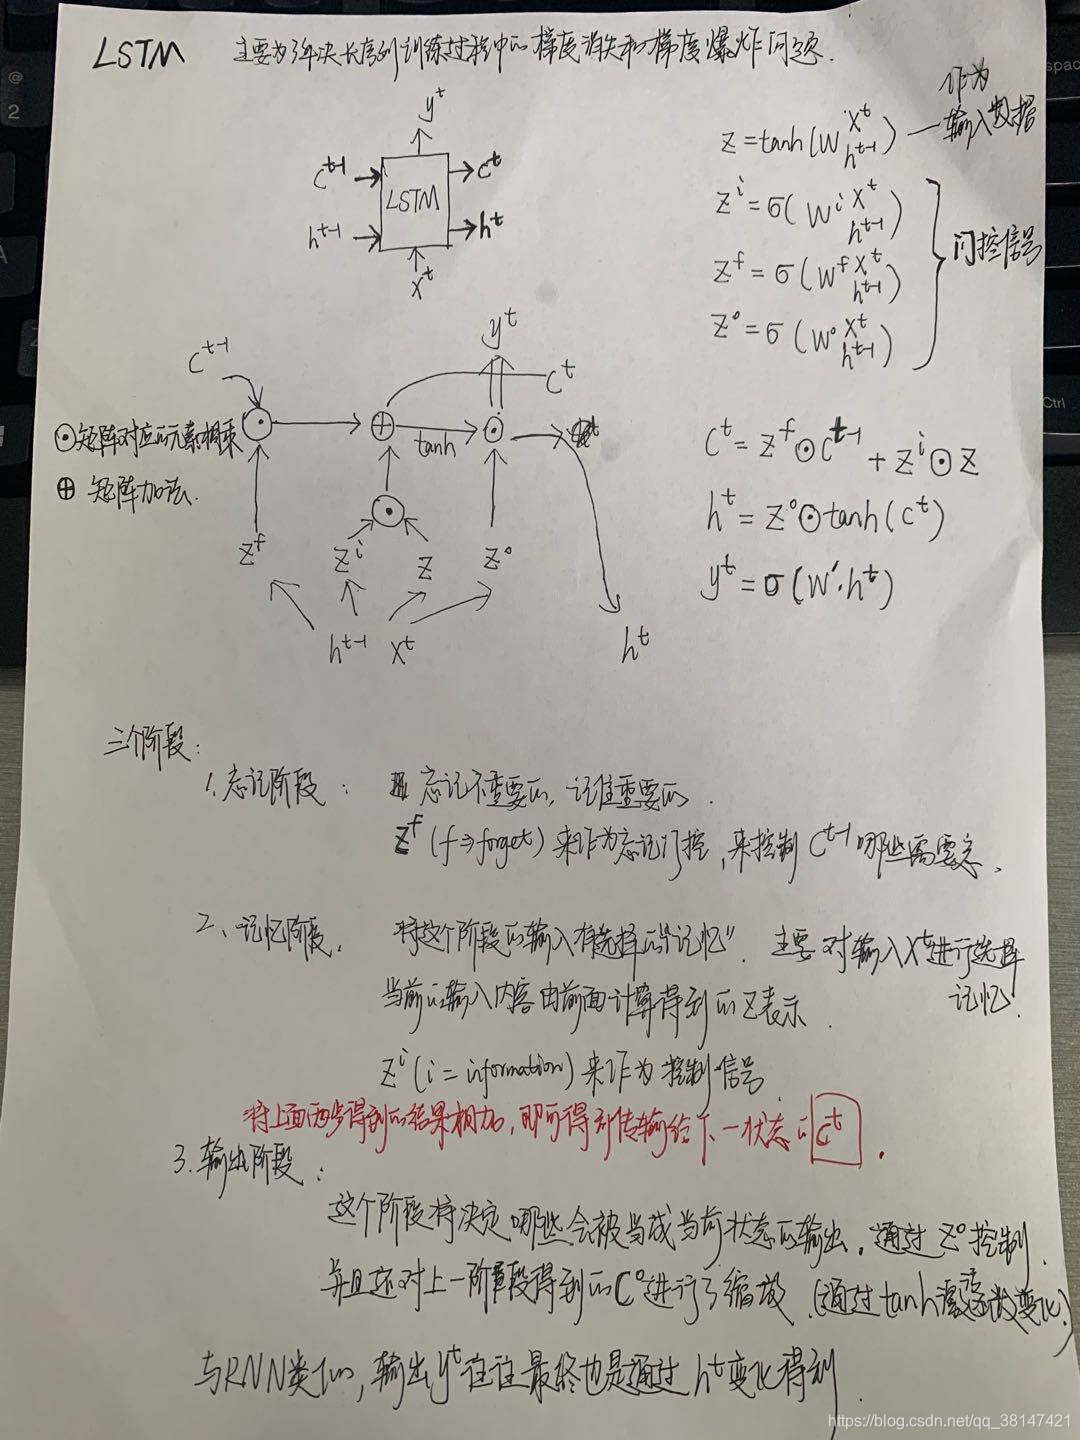 LSTM 主要为了解决长序列训练过程中的梯度消失和梯度爆炸问题.
y^t
c^{t-1} c^t
LSTM
h^{t-1} h^t
x^t
z = tanh(W x^t h^{t-1}) — 作为输入数据
z^i = σ(W^i x^t h^{t-1})
z^f = σ(W^f x^t h^{t-1})
z^o = σ(W^o x^t h^{t-1})
门控信号
y^t
c^{t-1} c^t
⊙矩阵对应的元素相乘
⊕ 矩阵加法.
tanh
z^f z^i z z^o
h^{t-1} x^t h^t
c^t = z^f ⊙ c^{t-1} + z^i ⊙ z
h^t = z^o ⊙ tanh(c^t)
y^t = σ(W'·h^t)
三个阶段:
1. 忘记阶段: 忘记不重要的, 记住重要的.
z^f (f⇒forget) 来作为忘记门控, 来控制 c^{t-1} 哪些需要忘、
2、记忆阶段. 将这个阶段的输入有选择的"记忆". 主要对输入x^t进行选择
记忆.
当前的输入内容由前面计算得到的z表示.
z^i (i = information) 来作为控制信号
将上面两步得到的结果相加, 即可得到传输给下一状态的 c^t.
3. 输出阶段:
这个阶段将决定哪些会被当成当前状态的输出. 通过 z^o 控制.
并且还对上一阶段得到的c^o进行了缩放. (通过tanh激活函数变化)
与RNN类似, 输出y^t往往最终也是通过 h^t 变化得到.
https://blog.csdn.net/qq_38147421
@
2
space
A
Ctrl